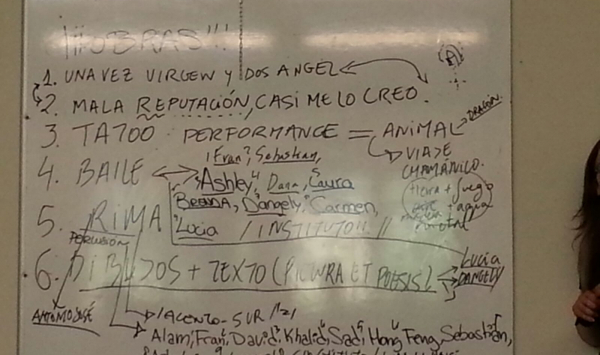 ¡¡¡OBRAS!!!
1. UNA VEZ VIRGEN Y DOS ANGEL
2. MALA REPUTACIÓN, CASI ME LO CREO.
3. TATOO PERFORMANCE = ANIMAL DRAGÓN
VIAJE CHAMÁNICO.
4. BAILE
Fran, Sebastian,
Ashley, Dana, Laura
BRENDA, Dangely, Carmen,
Lucia / INSTITUTO //
tierra + fuego
aire agua
metal
5. RIMA
PERCUSIÓN
6. DIBUJOS + TEXTO (PICTURA ET POESIS)
Lucia
DANGELY
ANTONIO JOSÉ
ACENTO - SUR
Alam, Fran, David, Khalid, Sadi, Hong Feng, Sebastián,